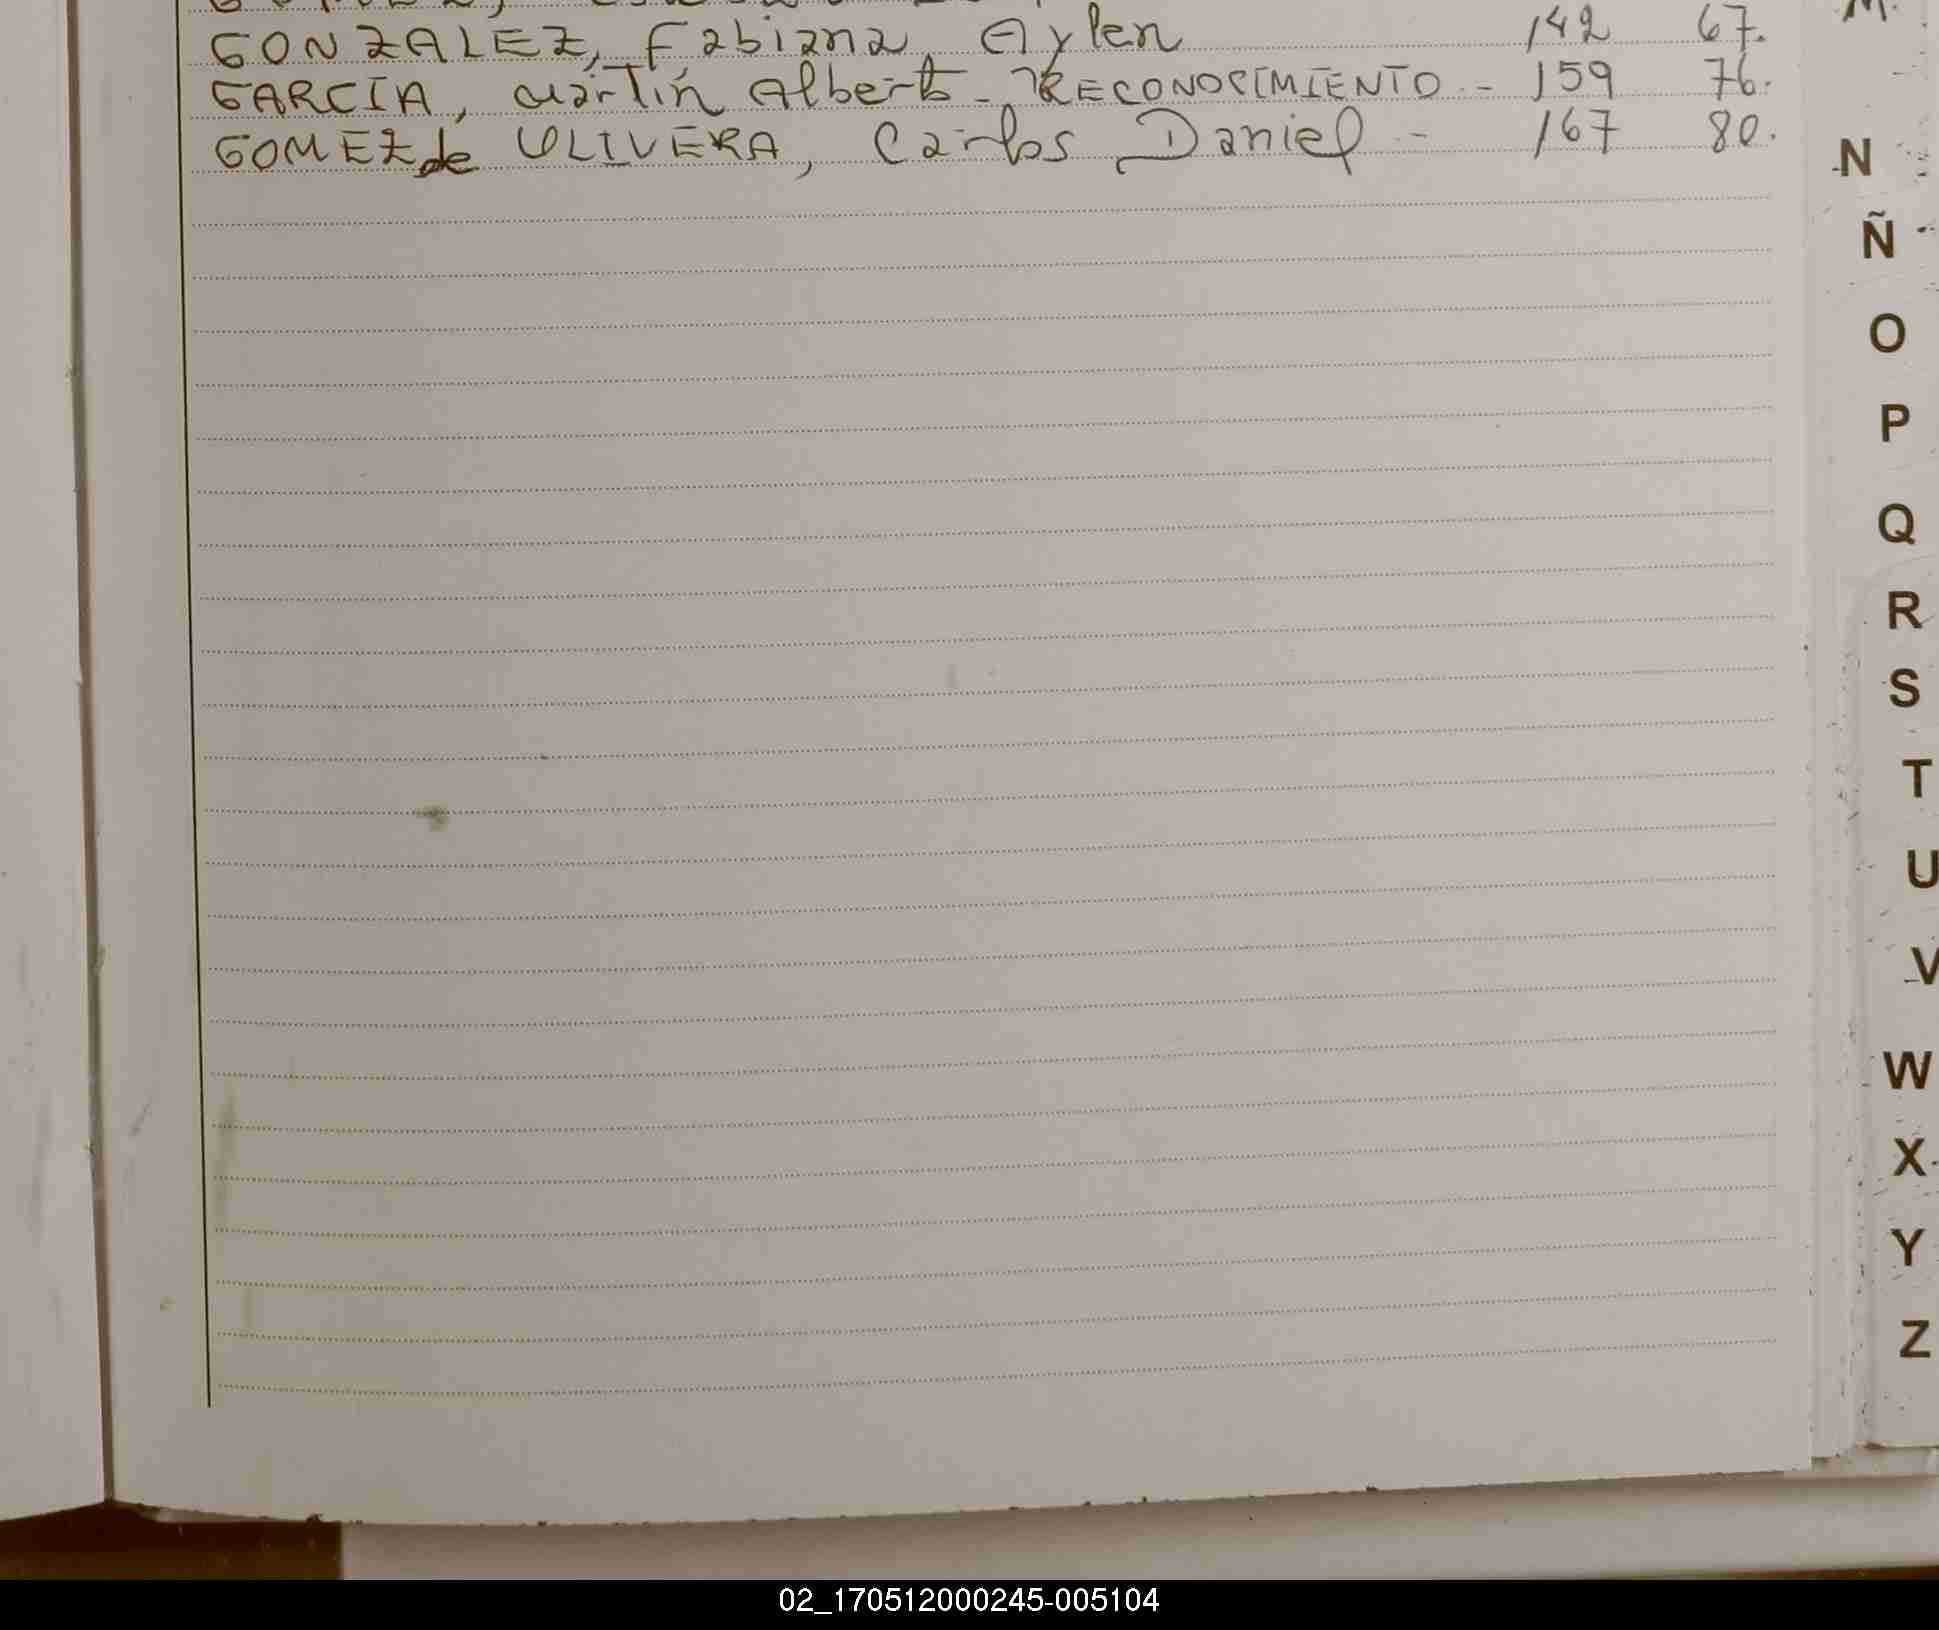 GONZALEZ, Fabiana Aylen 142 67.
GARCIA, Martin Alberto - RECONOCIMIENTO - 159 76.
GOMEZ de OLIVERA, Carlos Daniel - 167 80.
M
N
Ñ
O
P
Q
R
S
T
U
V
W
X
Y
Z
02_170512000245-005104